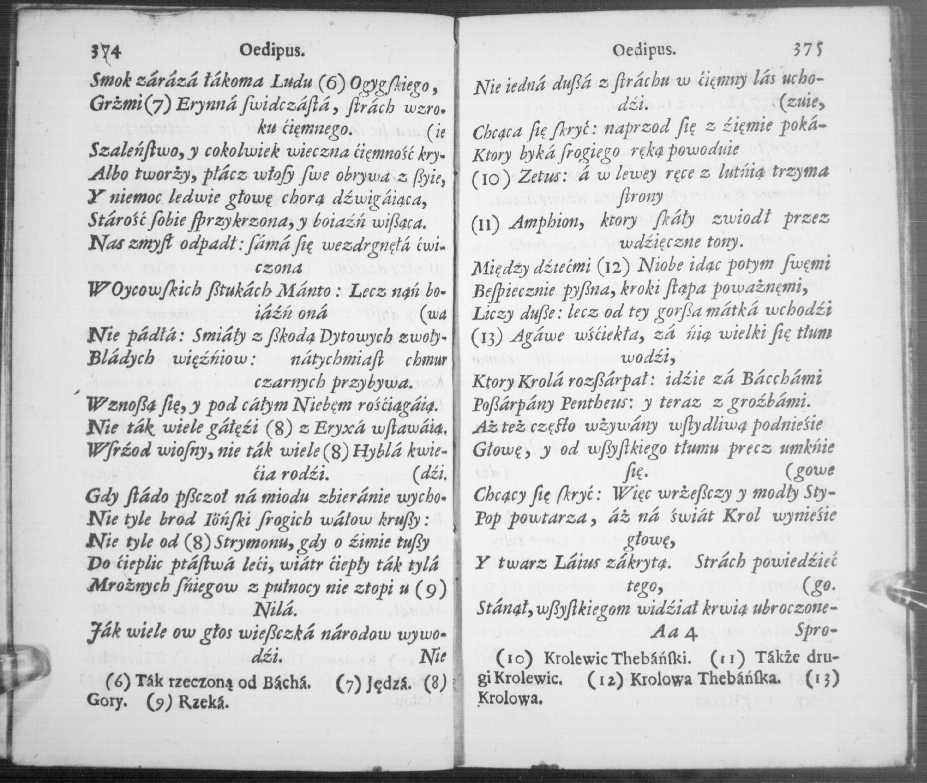 374 Oedipus.
Smok záráżá łákoma Ludu (6) Ogygſkiego,
Grżmi (7) Erynná ſwidcząſtá, ſtrách wzro-
ku ćięmnego. (ie
Szaleńſtwo, y cokolwiek wieczna ćięmność kry-
Albo tworży, płácz włoſy ſwe obrywa z ßyie,
Y niemoc ledwie głowę chorą dźwigáiąca,
Stárość ſobie ſprzykrzona, y boiaźń wißąca.
Nas zmyſł odpadł: ſámá ſię wezdrgnęłá ćwi-
czona
W Oycowſkich ßtukách Mánto: Lecz nąń bo-
iáźń oná (wa
Nie pádłá: Smiáły z ßkodą Dytowych zwoły-
Bládych więźńiow: nátychmiaſt chmur
czarnych przybywa.
Wznoßą ſię, y pod cáłym Niebem rośćiągáią.
Nie ták wiele gáłęźi (8) z Eryxá wſtawáią.
Wſrźod wioſny, nie ták wiele (8) Hyblá kwie-
ćia rodźi. (dźi.
Gdy ſtádo pßczoł ná miodu zbieránie wycho-
Nie tyle brod Iöńſki ſrogich wáłow krußy:
Nie tyle od (8) Strymonu, gdy o źimie tußy
Do ćieplic ptáſtwá leći, wiátr ćiepły ták tylá
Mroźnych ſńiegow z pułnocy nie ztopi u (9)
Nilá.
Ják wiele ow głos wießczká národow wywo-
dźi. Nie
(6) Ták rzeczoną od Báchá. (7) Jędzá. (8)
Gory. (9) Rzeká.
Oedipus. 375
Nie iedná dußá z ſtráchu w ćięmny lás ucho-
dźi. (zuie,
Chcąca ſię ſkryć: naprzod ſię z źięmie poká-
Ktory byká ſrogiego ręką powoduie
(10) Zetus: á w lewey ręce z lutńią trzyma
ſtrony
(11) Amphion, ktory ſkáły zwiodł przez
wdźięczne tony.
Między dźiećmi (12) Niobe idąc potym ſwęmi
Beſpiecznie pyßna, kroki ſtąpa poważnęmi,
Liczy duße: lecz od tey gorßa mátká wchodźi
(13) Agáwe wśćiekła, zá ńią wielki ſię tłum
wodźi,
Ktory Krolá rozßárpał: idźie zá Bácchámi
Poßárpány Pentheus: y teraz z groźbámi.
Aż też częſto wżywány wſtydliwą podnieśie
Głowę, y od wßyſtkiego tłumu precz umknie
ſię. (gowe
Chcący ſię ſkryć: Więc wrżeßczy y modły Sty-
Pop powtarza, áż ná świát Krol wynieśie
głowę,
Y twarz Láius zákrytą. Strách powiedźieć
tego, (go.
Stánął, wßyſtkiegom widźiał krwią ubroczone-
Aa 4 Spro-
(10) Krolewic Thebáńſki. (11) Tákże dru-
gi Krolewic. (12) Krolowa Thebáńſka. (13)
Krolowa.